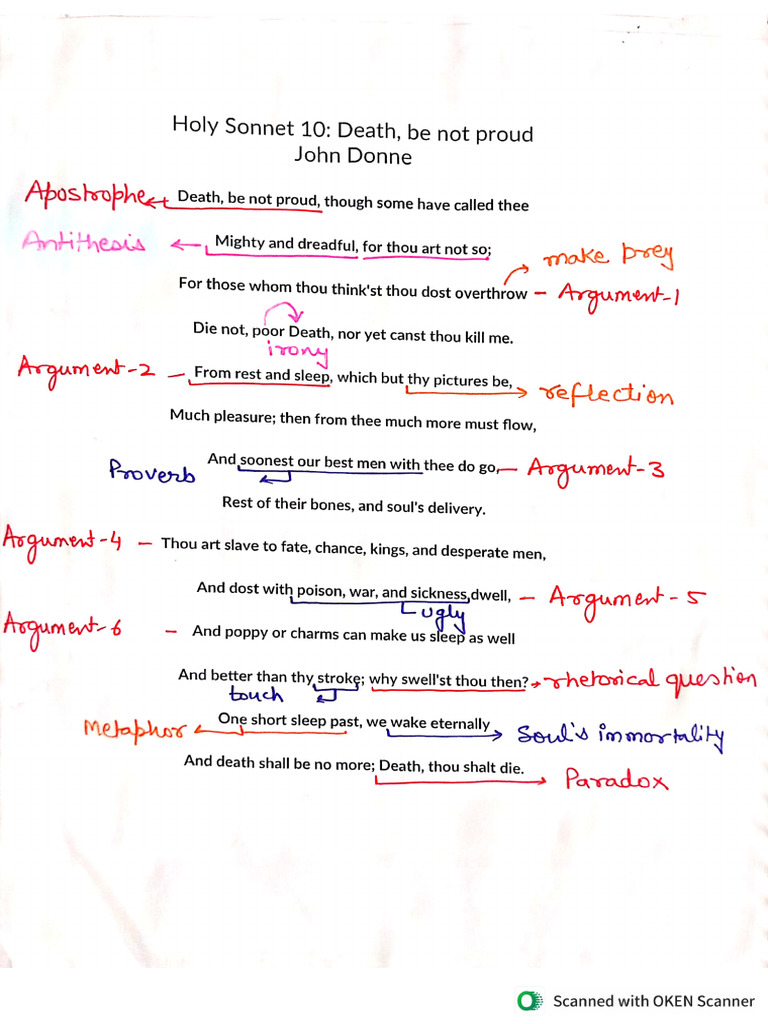 Holy Sonnet 10: Death, be not proud
John Donne
Apostrophe Death, be not proud, though some have called thee
Antithesis Mighty and dreadful, for thou art not so;
make prey
For those whom thou think'st thou dost overthrow - Argument-1
Die not, poor Death, nor yet canst thou kill me.
irony
Argument-2 - From rest and sleep, which but thy pictures be,
reflection
Much pleasure; then from thee much more must flow,
Proverb And soonest our best men with thee do go, - Argument-3
Rest of their bones, and soul's delivery.
Argument-4 - Thou art slave to fate, chance, kings, and desperate men,
And dost with poison, war, and sickness, dwell, - Argument-5
ugly
Argument-6 - And poppy or charms can make us sleep as well
And better than thy stroke; why swell'st thou then? rhetorical question
touch
Metaphor One short sleep past, we wake eternally Soul's immortality
And death shall be no more; Death, thou shalt die.
Paradox
Scanned with OKEN Scanner